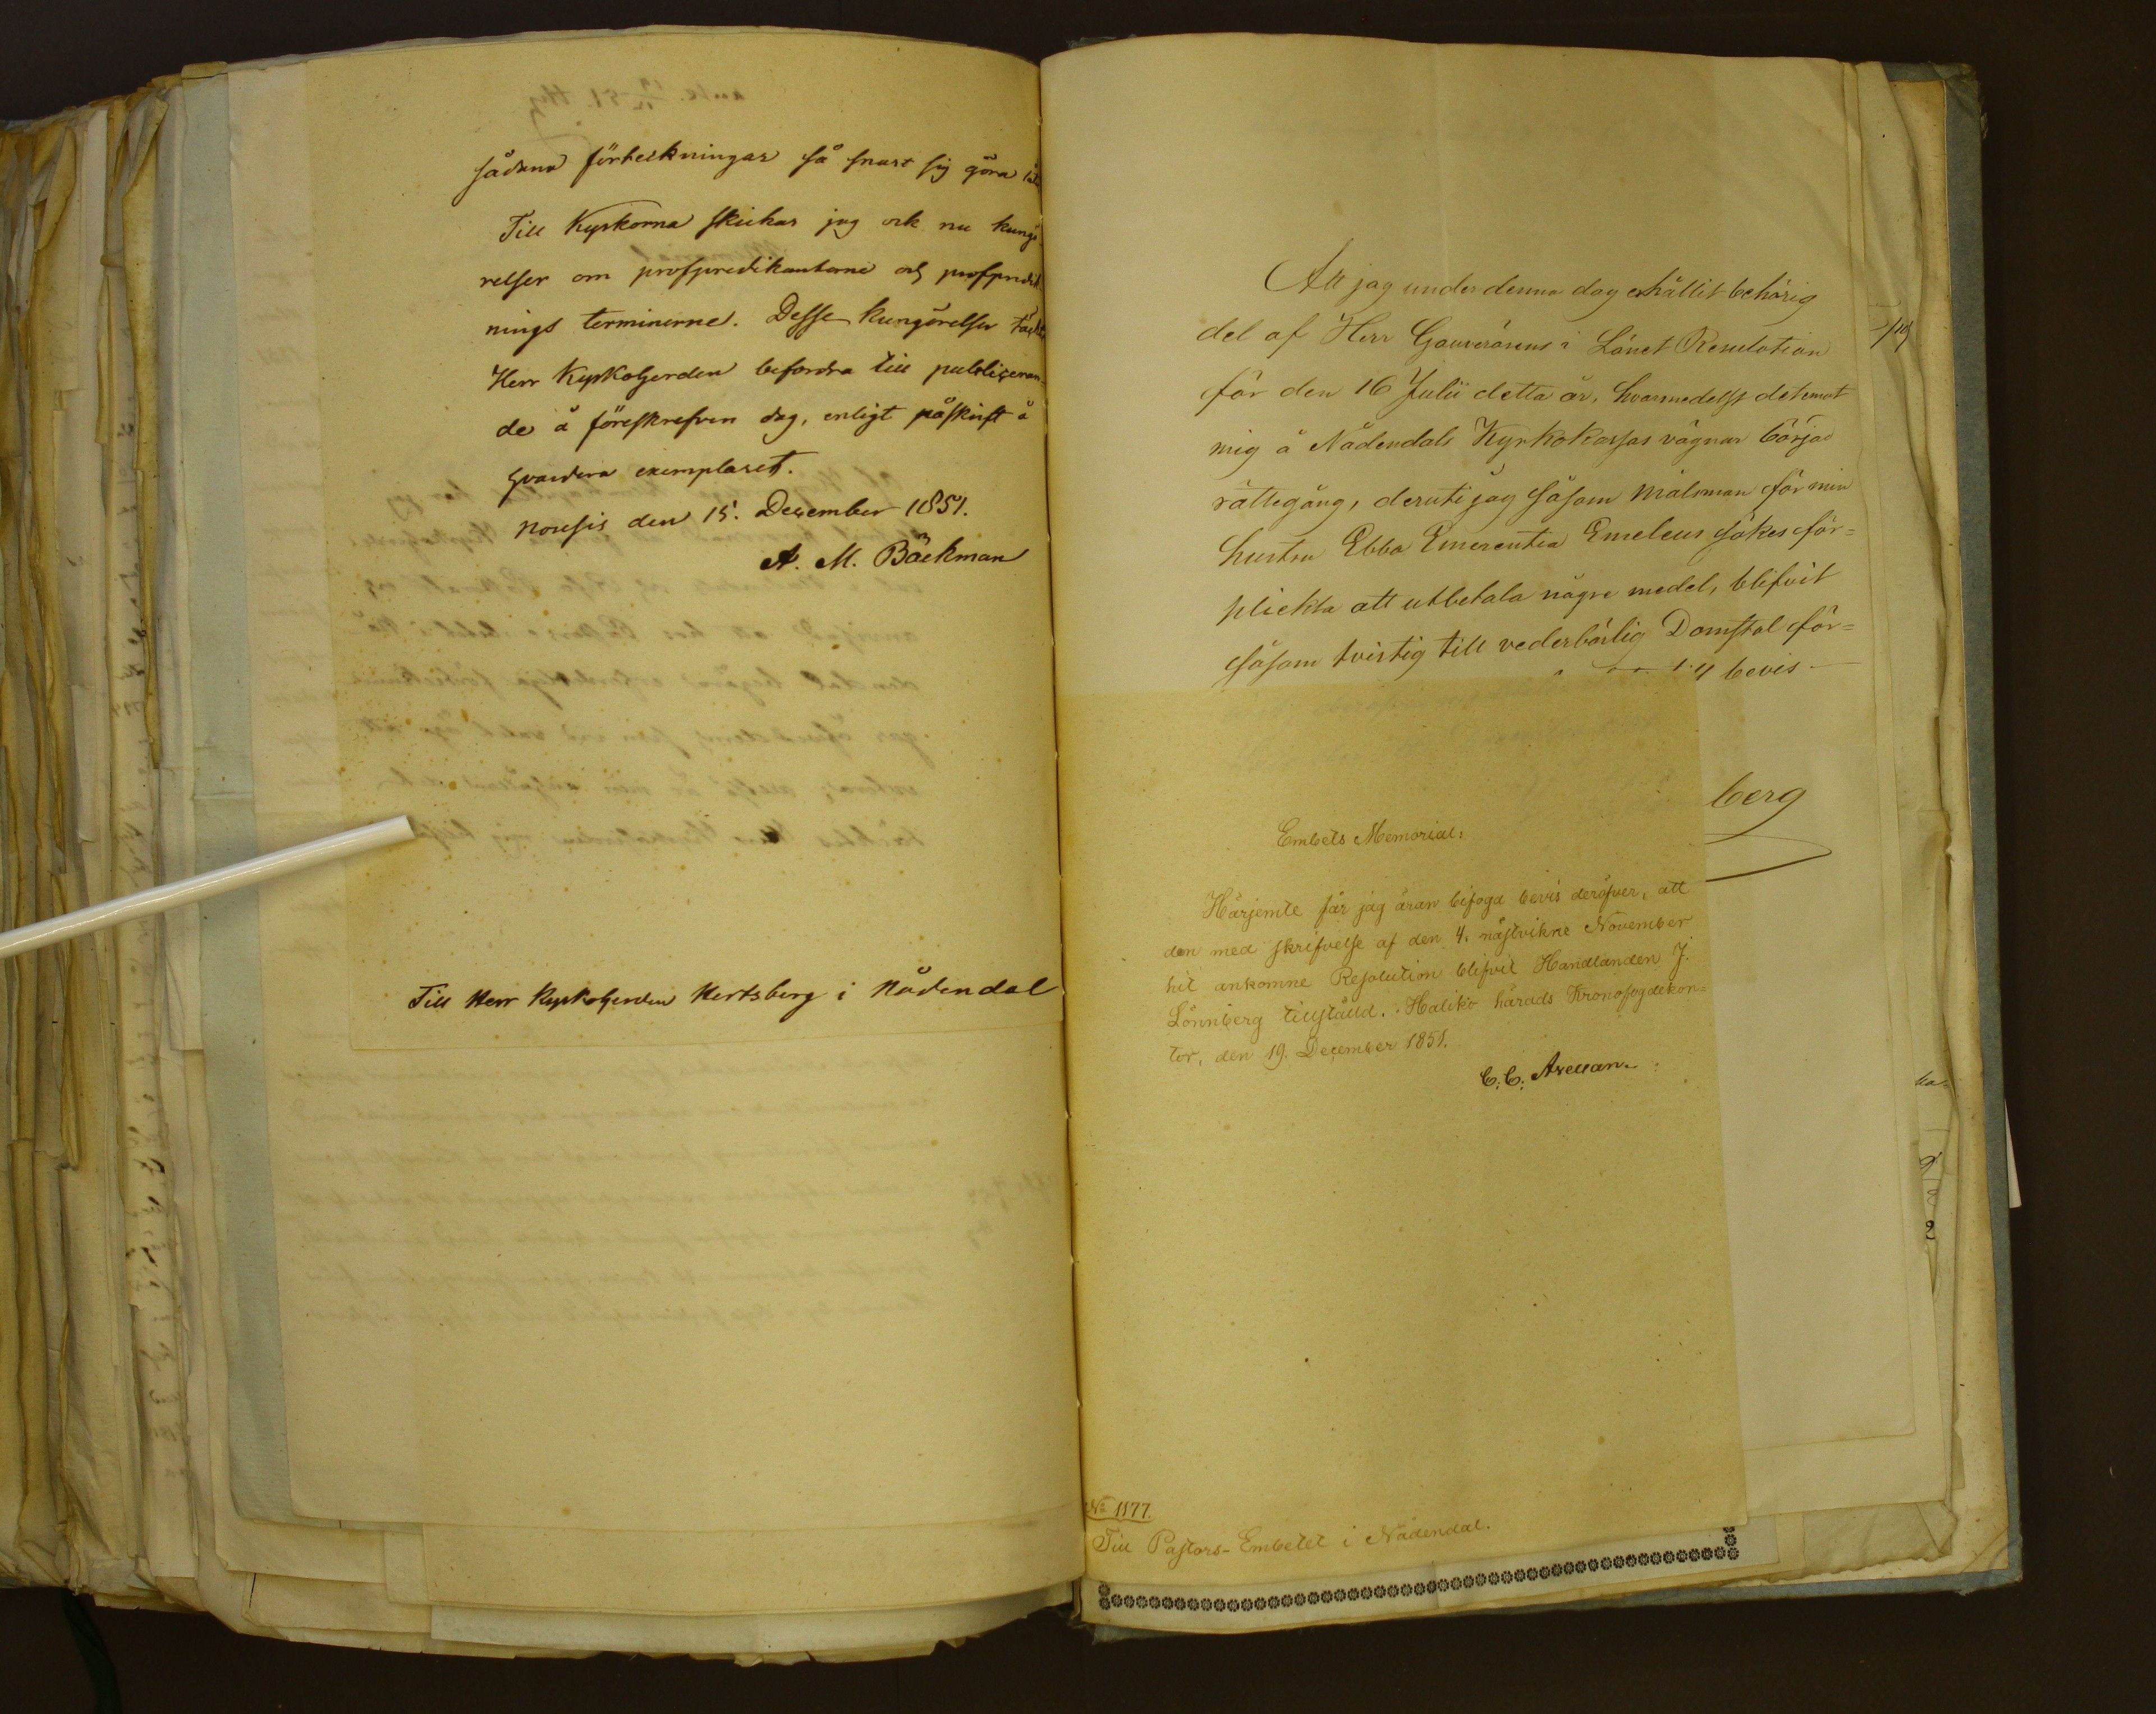 sådana förteckningar så snart sig göra låte
Till Kyrkorna skickar jag ock nu kungö-
relser om profpredikanterne och profpredik-
nings terminerne. Desse kungörelser täcktes
Herr Kyrkoherden befordra till publiceran-
de å föreskrefven dag, enligt påskrift å
hvardera exemplaret.
Nousis den 15. December 1851.
A. M. Bäckman
Till Herr Kyrkoherden Hertsberg i Nådendal
Att jag under denna dag erhållit behörig
del af Herr Gouverörens i Länet Resulotion
för den 16 Julii detta år, hvarmedelst det emot
mig å Nådendals Kyrkokassas vägnar börjad
rättegång, deruti jag såsom målsman för min
hustru Ebba Emerentia Emeleus sökes för=
plickta att utbetala någre medel, blifvit
såsom tvistig till vederbörlig Domstol för=
bevis
berg
Embets Memorial:
Härjemte får jag äran bifoga bevis deröfver, att
den med skrifvelse af den 4. nästvikne November
hit ankomne Resolution blifvit Handlanden J.
Lönnberg tillställd. Haliko härads Kronofogdekon=
tor, den 19. December 1851.
C. C. Arellan.
No 1177.
Till Pastors-Embetet i Nådendal.